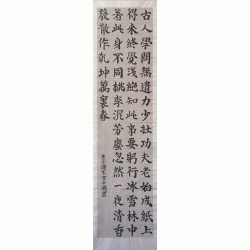 古人學問無遺力少壯功夫老始成紙上
得来終覺淺絕知此事要躬行冰雪林中
著此身不同桃李混芳塵忽然一夜清香
發散作乾坤萬裏春